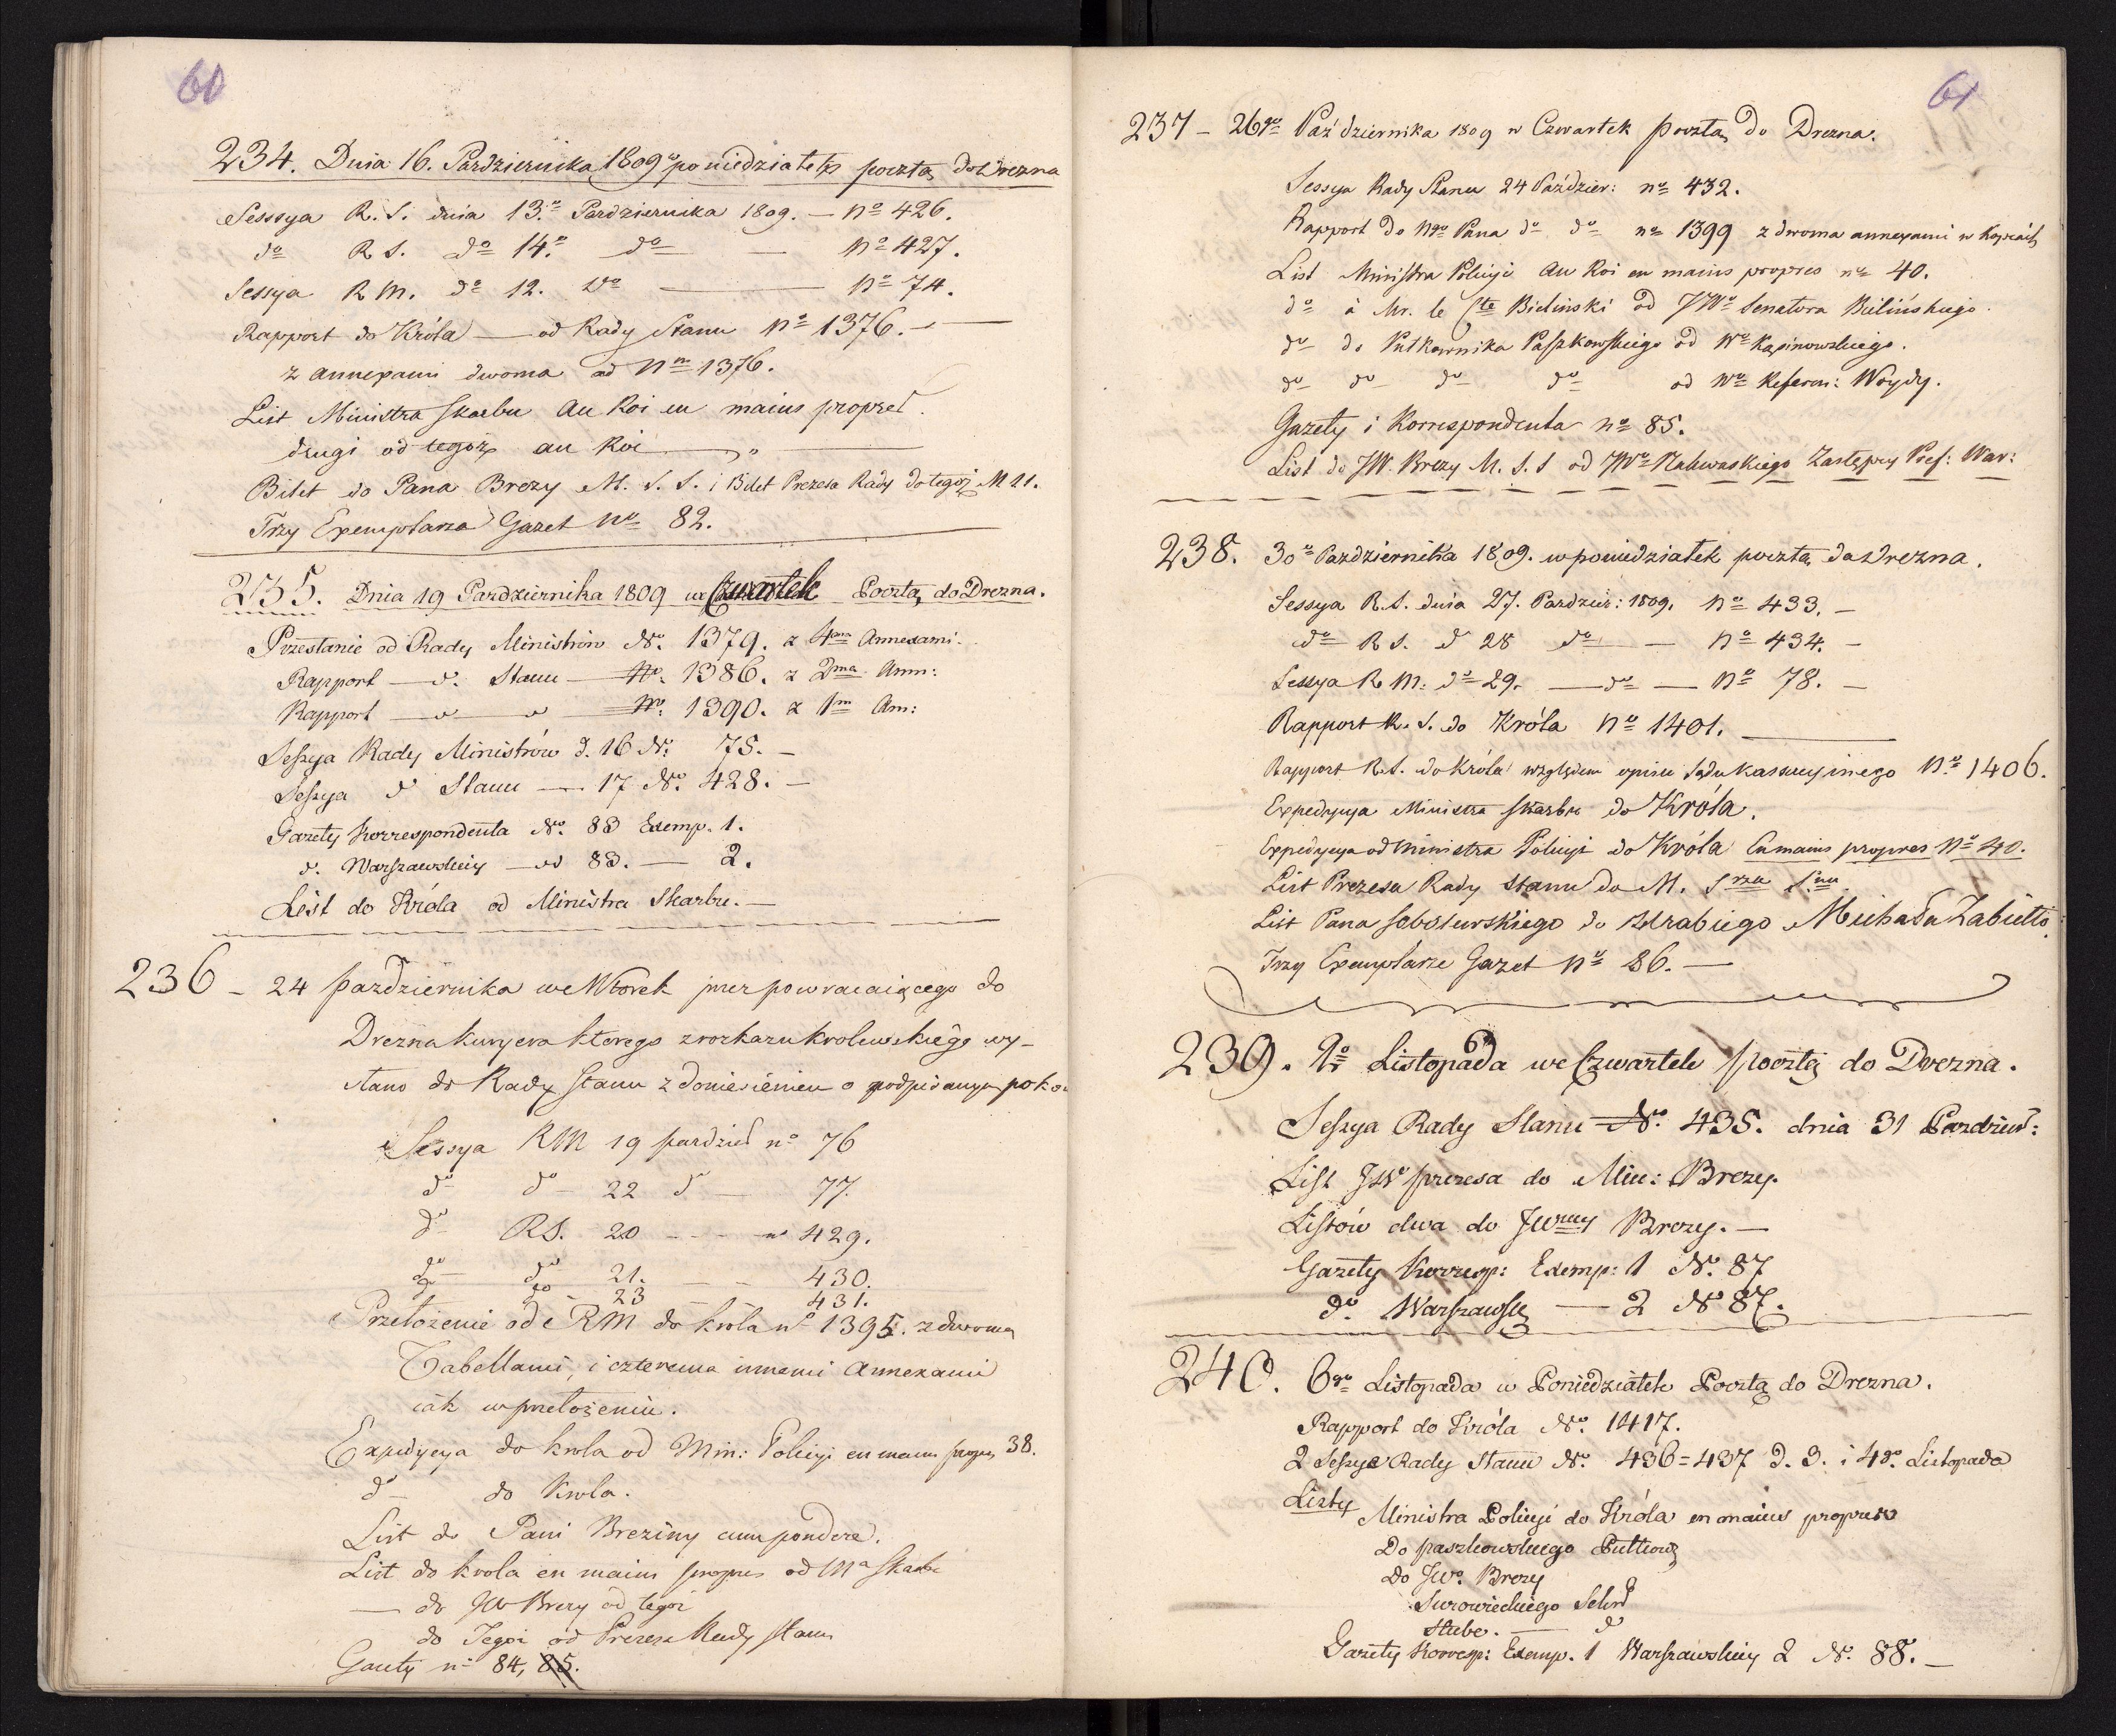 60
234. Dnia 16. Pazdziernika 1809 w poniedziałek pocztą do Drezna
Sesssya R. S. dnia 13.º Pazdziernika 1809. — nº 426.
dº R S. dº 14.º dº — nº 427.
Sessya R M. dº 12. dº — nº 74.
Rapport do Króla — od Rady Stanu nº 1376. —
z annexami dwoma ad Nm 1376.
List Ministra Skarbu Au Roi en mains propres.
drugi od tegoż au Roi — „ —
Bilet do Pana Brezy M. S. S. i Bilet Prezesa Rady do tegoż M 21.
Trzy Exemplarza Gazet nº 82.
235. Dnia 19 Pazdziernika 1809 we Czwartek Pocztą do Drezna.
Przesłanie od Rady Ministrów Nº. 1379. z 4ma Annexami.
Rapport — d. Stanu — Nº. 1386. z 2ma Ann:
Rapport — d — d — Nº. 1390. z 1m An:
Seszya Rady Ministrów d. 16 Nº. 75. —
Seszya d Stanu — 17 Nº. 428. —
Gazety Korrespondenta Nº. 83 Exemp. 1.
d. Warszawskiey — d 83. — 2.
List do Króla od Ministra Skarbu. —
236 - 24 pazdziernika we Wtorek przez powracaiącego do
Drezna kuryera ktorego z rozkazu krolewskiego wy-
słano do Rady stanu z doniesieniem o podpisanym poko
Sessya RM 19 pazdzier nº 76
dº dº — 22 dº — 77.
dº RS. 20 - - - nº 429.
dº dº 21. — 430.
dº dº - 23 — 431.
Przełożenie od RM do krola nº 1395. z dwoma
Tabellami, i czterema innemi Annexami
iak w przełożeniu.
Expedycya do krola od Min: Policyi en mains propres 38.
dº do Krola.
List do Pani Breziny cum pondere.
List do krola en mains propres od Ma Skarbu
— do JW Brezy od tegoż
do Tegoż od Prezesa Rady stanu
Gazety nº 84, 85.
61
237 - 26go Października 1809 w Czwartek pocztą do Drezna.
Sessya Rady Stanu 24 Paździer: nº 432.
Rapport do Ngo Pana dº dº nº 1399 z dwoma annexami w kopiach
List Ministra Policyi Au Roi en mains propres nº 40.
dº à Mr. le Cte Bielinski od JWº Senatora Bielińskiego.
dº do Pułkownika Paszkowskiego od Wº Kapinowskiego.
dº dº dº dº od Wº Referen: Woydy.
Gazety i Korrespondenta nº 85.
List do JW. Brezy M. S. S od JWº Nakwaskiego Zastępcy Pref: War:
238. 30º Pazdziernika 1809. w poniedziałek pocztą do Drezna.
Sessya R. S. dnia 27. Pazdzier: 1809. nº 433. —
dº R S. d 28 dº — nº 434. —
Sessya R M: dº 29. — dº — nº 78. —
Rapport R. S. do Króla nº 1401. —
Rapport R. S. do Króla względem opisu Sądu kassacyinego Nº 1406.
Expedycya Ministra Skarbu do Króla.
Expedycya od Ministra Policyi do Króla En mains propres Nº 40.
List Prezesa Rady stanu do M. Srza Snu
List Pana Sobolewskiego do Hrabiego Michała Zabiełło.
Trzy Exemplarze Gazet nº 86. —
239. 2º Listopada we Czwartek pocztą do Drezna.
Seszya Rady Stanu Nº. 435. dnia 31 Pazdzier:
List JWº prezesa do Min: Brezy.
Listów dwa do JWney Brezy. —
Gazety Korresp: Exemp: 1 Nº. 87
dº. Warszawsk — 2 Nº 87.
240. 6go Listopada w Poniedziałek Pocztą do Drezna.
Rapport do Króla Nº. 1417.
2 Seszye Rady Stanu Nº. 436 = 437 d. 3. i 4go. Listopada
Listy Ministra Policyi do Króla en mains propres
Do paszkowskiego Pułkow
Do JWº. Brezy
Surowieckiego Sekr
Stabe. — dº
Gazety Korresp: Exemp. 1 Warszawskiey 2 Nº. 88. —